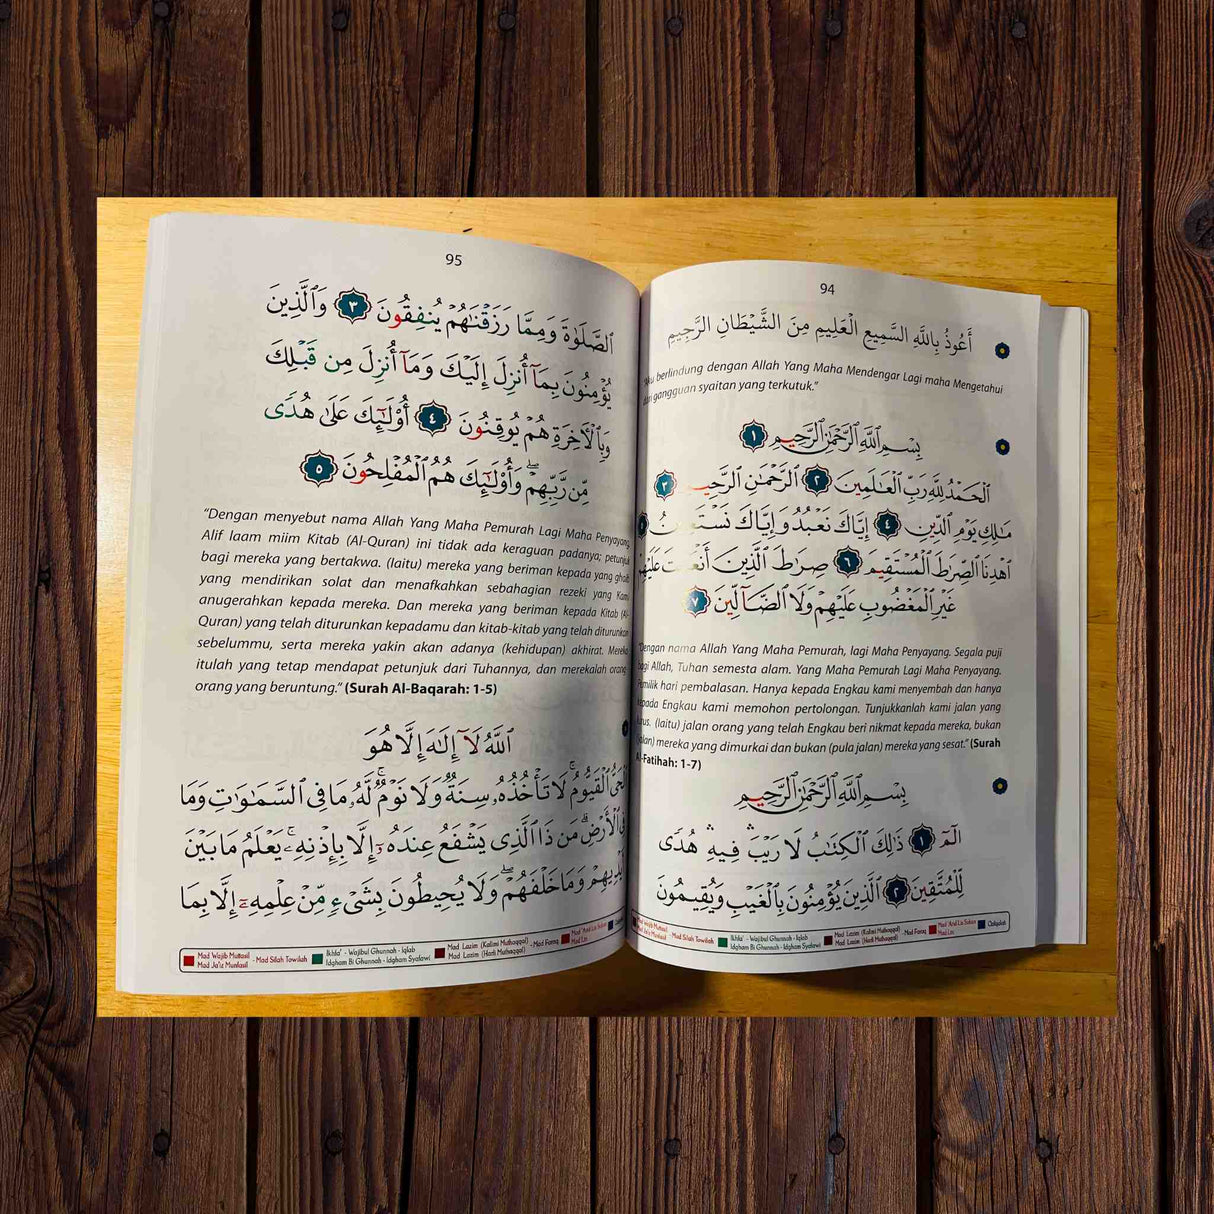 94
أَعُوذُ بِاللَّهِ السَّمِيعِ الْعَلِيمِ مِنَ الشَّيْطَانِ الرَّجِيمِ
"Aku berlindung dengan Allah Yang Maha Mendengar Lagi maha Mengetahui
dari gangguan syaitan yang terkutuk."
بِسْمِ ٱللَّهِ ٱلرَّحْمَٰنِ ٱلرَّحِيمِ ١
ٱلْحَمْدُ لِلَّهِ رَبِّ ٱلْعَٰلَمِينَ ٢ ٱلرَّحْمَٰنِ ٱلرَّحِيمِ ٣
مَٰلِكِ يَوْمِ ٱلدِّينِ ٤ إِيَّاكَ نَعْبُدُ وَإِيَّاكَ نَسْتَعِينُ ٥
ٱهْدِنَا ٱلصِّرَٰطَ ٱلْمُسْتَقِيمَ ٦ صِرَٰطَ ٱلَّذِينَ أَنْعَمْتَ عَلَيْهِمْ
غَيْرِ ٱلْمَغْضُوبِ عَلَيْهِمْ وَلَا ٱلضَّآلِّينَ ٧
"Dengan nama Allah Yang Maha Pemurah, lagi Maha Penyayang. Segala puji
bagi Allah, Tuhan semesta alam. Yang Maha Pemurah Lagi Maha Penyayang.
Pemilik hari pembalasan. Hanya kepada Engkau kami menyembah dan hanya
kepada Engkau kami memohon pertolongan. Tunjukkanlah kami jalan yang
lurus. (Iaitu) jalan orang yang telah Engkau beri nikmat kepada mereka, bukan
(jalan) mereka yang dimurkai dan bukan (pula jalan) mereka yang sesat." (Surah
Al-Fatihah: 1-7)
بِسْمِ ٱللَّهِ ٱلرَّحْمَٰنِ ٱلرَّحِيمِ
الٓمٓ ١ ذَٰلِكَ ٱلْكِتَٰبُ لَا رَيْبَ ۛ فِيهِ ۛ هُدًى
لِّلْمُتَّقِينَ ٢ ٱلَّذِينَ يُؤْمِنُونَ بِٱلْغَيْبِ وَيُقِيمُونَ
Mad Wajib Muttasil
Mad Ja'iz Munfasil
- Mad Silah Towilah
Ikhfa' - Wajibul Ghunnah - Iqlab
Idgham Bi Ghunnah - Idgham Syafawi
Mad Lazim (Kalimi Muthaqqal)
Mad Lazim (Harfi Muthaqqal)
- Mad Faraq
Mad 'Arid Lis Sukun
Mad Lin
Qalqalah
95
ٱلصَّلَوٰةَ وَمِمَّا رَزَقْنَٰهُمْ يُنفِقُونَ ٣ وَٱلَّذِينَ
يُؤْمِنُونَ بِمَآ أُنزِلَ إِلَيْكَ وَمَآ أُنزِلَ مِن قَبْلِكَ
وَبِٱلْأَخِرَةِ هُمْ يُوقِنُونَ ٤ أُو۟لَٰٓئِكَ عَلَىٰ هُدًى
مِّن رَّبِّهِمْ ۖ وَأُو۟لَٰٓئِكَ هُمُ ٱلْمُفْلِحُونَ ٥
"Dengan menyebut nama Allah Yang Maha Pemurah Lagi Maha Penyayang.
Alif laam miim Kitab (Al-Quran) ini tidak ada keraguan padanya; petunjuk
bagi mereka yang bertakwa. (Iaitu) mereka yang beriman kepada yang ghaib
yang mendirikan solat dan menafkahkan sebahagian rezeki yang Kami
anugerahkan kepada mereka. Dan mereka yang beriman kepada Kitab (Al-
Quran) yang telah diturunkan kepadamu dan kitab-kitab yang telah diturunkan
sebelummu, serta mereka yakin akan adanya (kehidupan) akhirat. Mereka
itulah yang tetap mendapat petunjuk dari Tuhannya, dan merekalah orang-
orang yang beruntung." (Surah Al-Baqarah: 1-5)
ٱللَّهُ لَآ إِلَٰهَ إِلَّا هُوَ
ٱلْحَىُّ ٱلْقَيُّومُ ۚ لَا تَأْخُذُهُۥ سِنَةٌ وَلَا نَوْمٌ ۚ لَّهُۥ مَا فِى ٱلسَّمَٰوَٰتِ وَمَا
فِى ٱلْأَرْضِ ۗ مَن ذَا ٱلَّذِى يَشْفَعُ عِندَهُۥٓ إِلَّا بِإِذْنِهِۦ ۚ يَعْلَمُ مَا بَيْنَ
أَيْدِيهِمْ وَمَا خَلْفَهُمْ ۖ وَلَا يُحِيطُونَ بِشَىْءٍ مِّنْ عِلْمِهِۦٓ إِلَّا بِمَا
Mad Wajib Muttasil
Mad Ja'iz Munfasil
- Mad Silah Towilah
Ikhfa' - Wajibul Ghunnah - Iqlab
Idgham Bi Ghunnah - Idgham Syafawi
Mad Lazim (Kalimi Muthaqqal)
Mad Lazim (Harfi Muthaqqal)
- Mad Faraq
Mad 'Arid Lis Sukun
Mad Lin